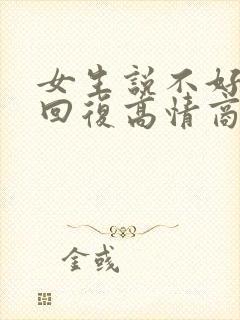 女生説不好
回復高情商
金彧